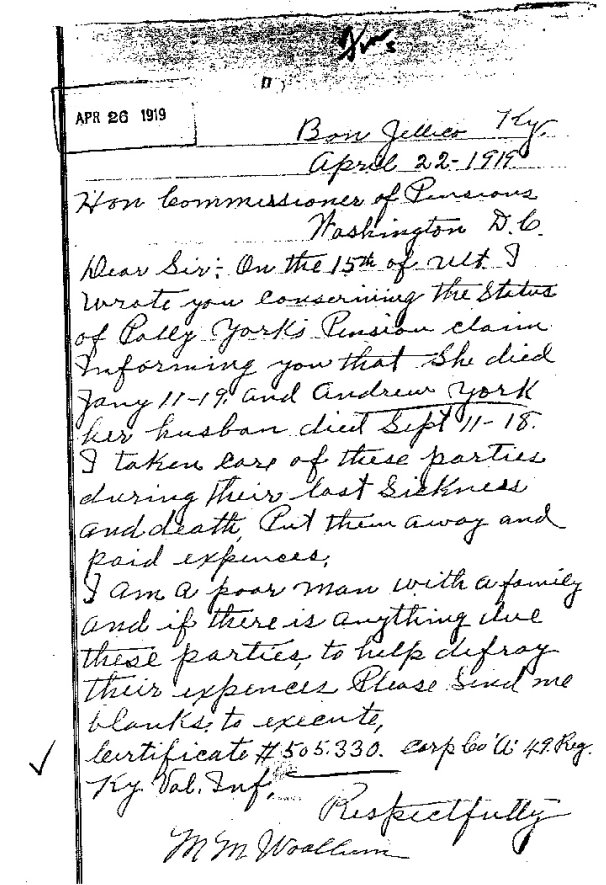 APR 26 1919
Bon Jellico Ky.
April 22-1919
Hon Commissioner of Pensions
Washington D.C.
Dear Sir; On the 15th of ult. I
wrote you conserning the Status
of Polly York's Pension claim
Informing you that She died
Jany 11-19, and Andrew York
her husban died Sept 11-18.
I taken care of these parties
during their last Sickness
and death, Put them away and
paid expences,
I am a poor man with a family
and if there is anything due
these parties, to help defray
their expences Please Send me
blanks, to execute,
Certificate #505.330. Corp Co "A" 49. Reg.
Ky. Vol. Inf,
Respectfully
M M Woollum